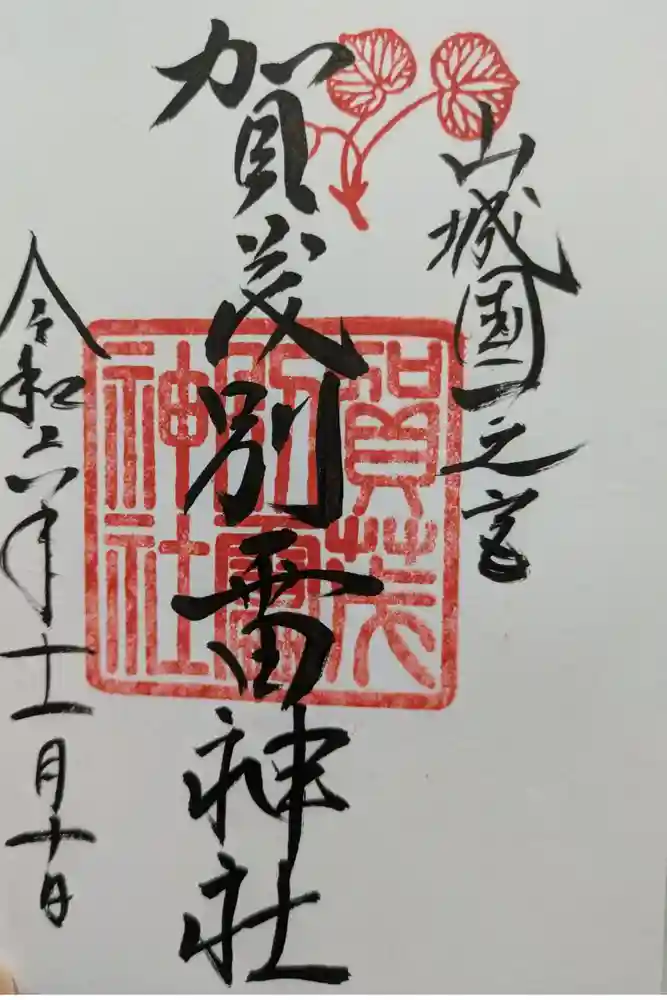 山城国一之宮
賀茂別雷神社
賀茂
別雷
神社
令和六年十一月十日